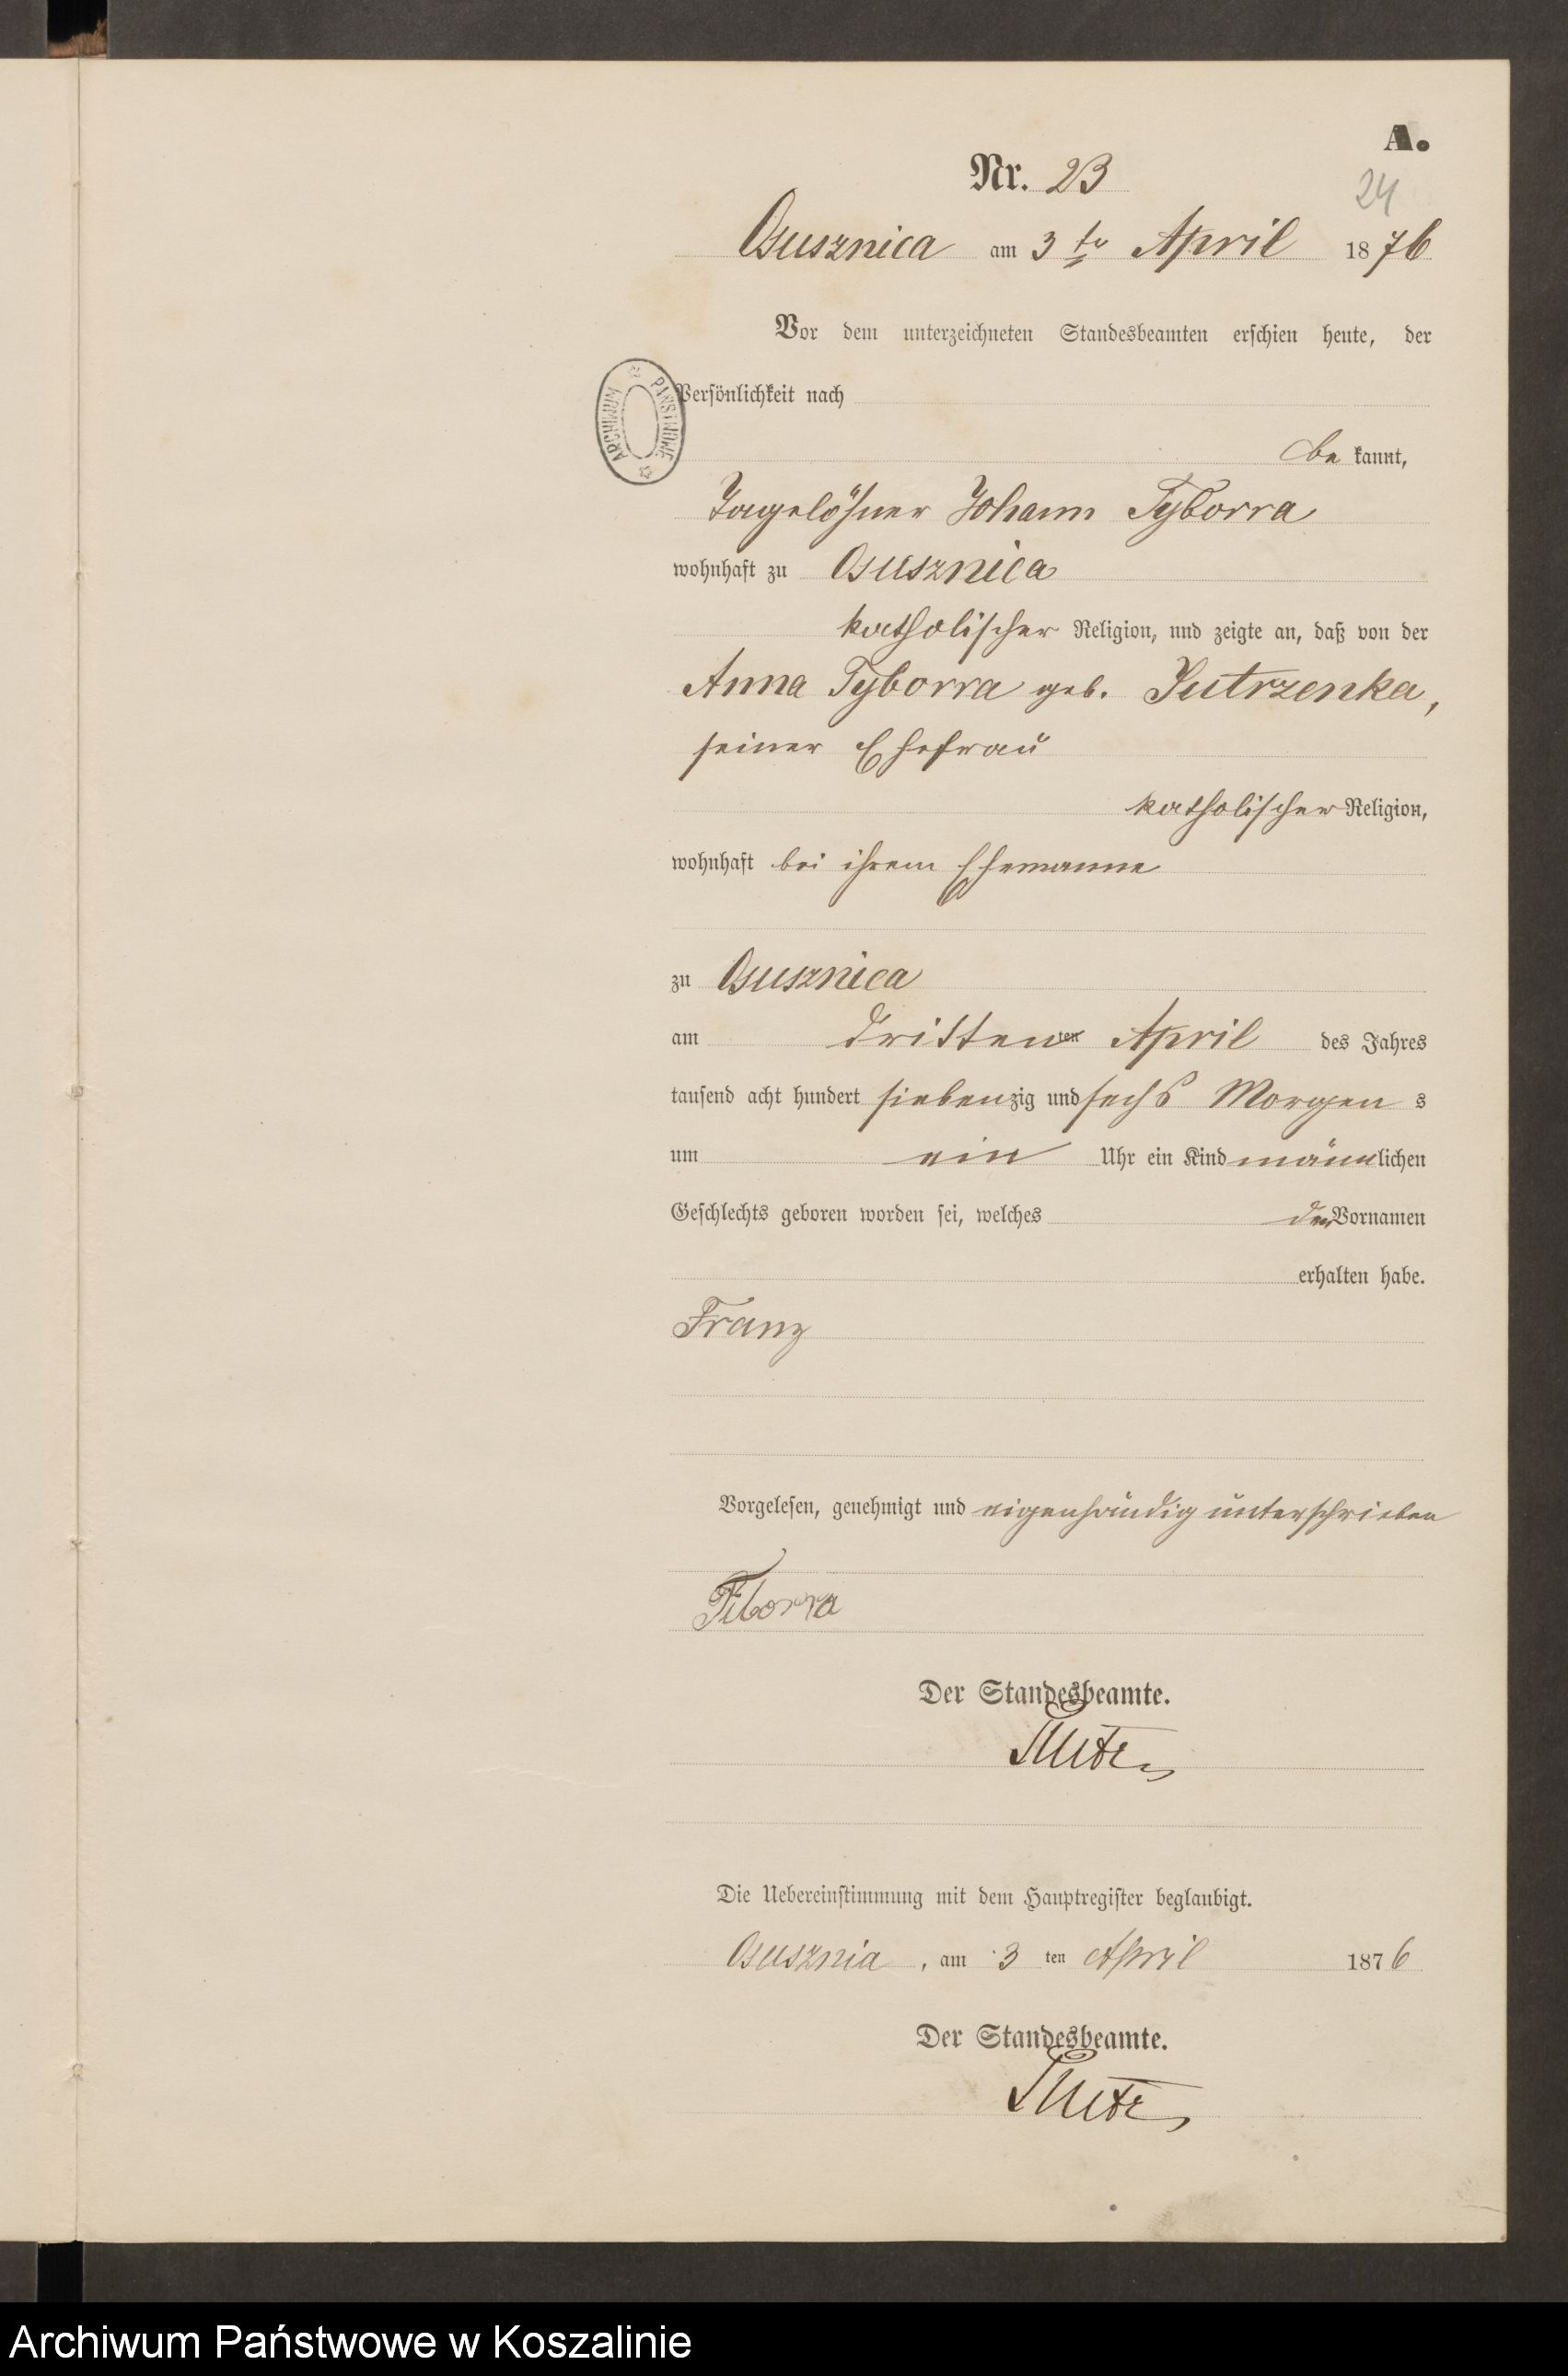 A.
Nr. 23
24
Osusznica am 3 te April 1876
Vor dem unterzeichneten Standesbeamten erschien heute, der
Persönlichkeit nach
ARCHIWUM PAŃSTWOWE
be kannt,
Tagelöhner Johann Tyborra
wohnhaft zu Osusznica
katholischer Religion, und zeigte an, daß von der
Anna Tyborra geb. Jutrzenka,
seiner Ehefrau
katholischer Religion,
wohnhaft bei ihrem Ehemanne
zu Osusznica
am dritten ten April des Jahres
tausend acht hundert siebenzig und sechs Morgen s
um ein Uhr ein Kind männlichen
Geschlechts geboren worden sei, welches den Vornamen
erhalten habe.
Franz
Vorgelesen, genehmigt und eigenhändig unterschrieben
Tiborra
Der Standesbeamte.
Die Uebereinstimmung mit dem Hauptregister beglaubigt.
Osusznia, am 3 ten April 1876
Der Standesbeamte.
Archiwum Państwowe w Koszalinie